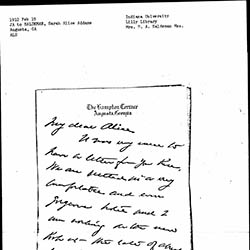 1912 Feb 18
JA to HALDEMAN, Sarah Alice Addams
Augusta, GA
ALS
Indiana University
Lilly Library
Mrs. V. A. Haldeman Mss.
The Hampton Terrace
Augusta, Georgia
My dear Alice
It was very nice to
have a letter from you here,
We are settled in a very
comfortable and even
gorgeous hotel and I
am working on the